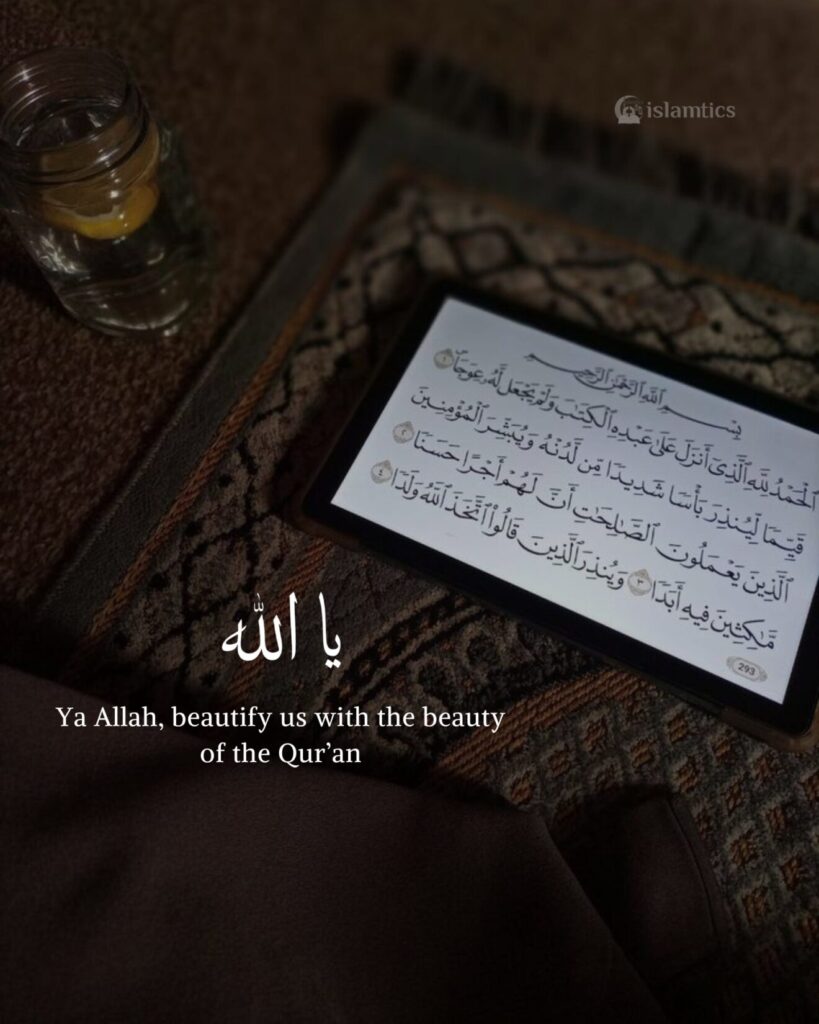 islamtics
بِسْمِ ٱللَّهِ ٱلرَّحْمَٰنِ ٱلرَّحِيمِ
ٱلْحَمْدُ لِلَّهِ ٱلَّذِىٓ أَنزَلَ عَلَىٰ عَبْدِهِ ٱلْكِتَٰبَ وَلَمْ يَجْعَل لَّهُۥ عِوَجَا ۜ ١
قَيِّمًا لِّيُنذِرَ بَأْسًا شَدِيدًا مِّن لَّدُنْهُ وَيُبَشِّرَ ٱلْمُؤْمِنِينَ
ٱلَّذِينَ يَعْمَلُونَ ٱلصَّٰلِحَٰتِ أَنَّ لَهُمْ أَجْرًا حَسَنًا ٢
مَّٰكِثِينَ فِيهِ أَبَدًا ٣ وَيُنذِرَ ٱلَّذِينَ قَالُوا۟ ٱتَّخَذَ ٱللَّهُ وَلَدًا ٤
293
يا الله
Ya Allah, beautify us with the beauty
of the Qur’an